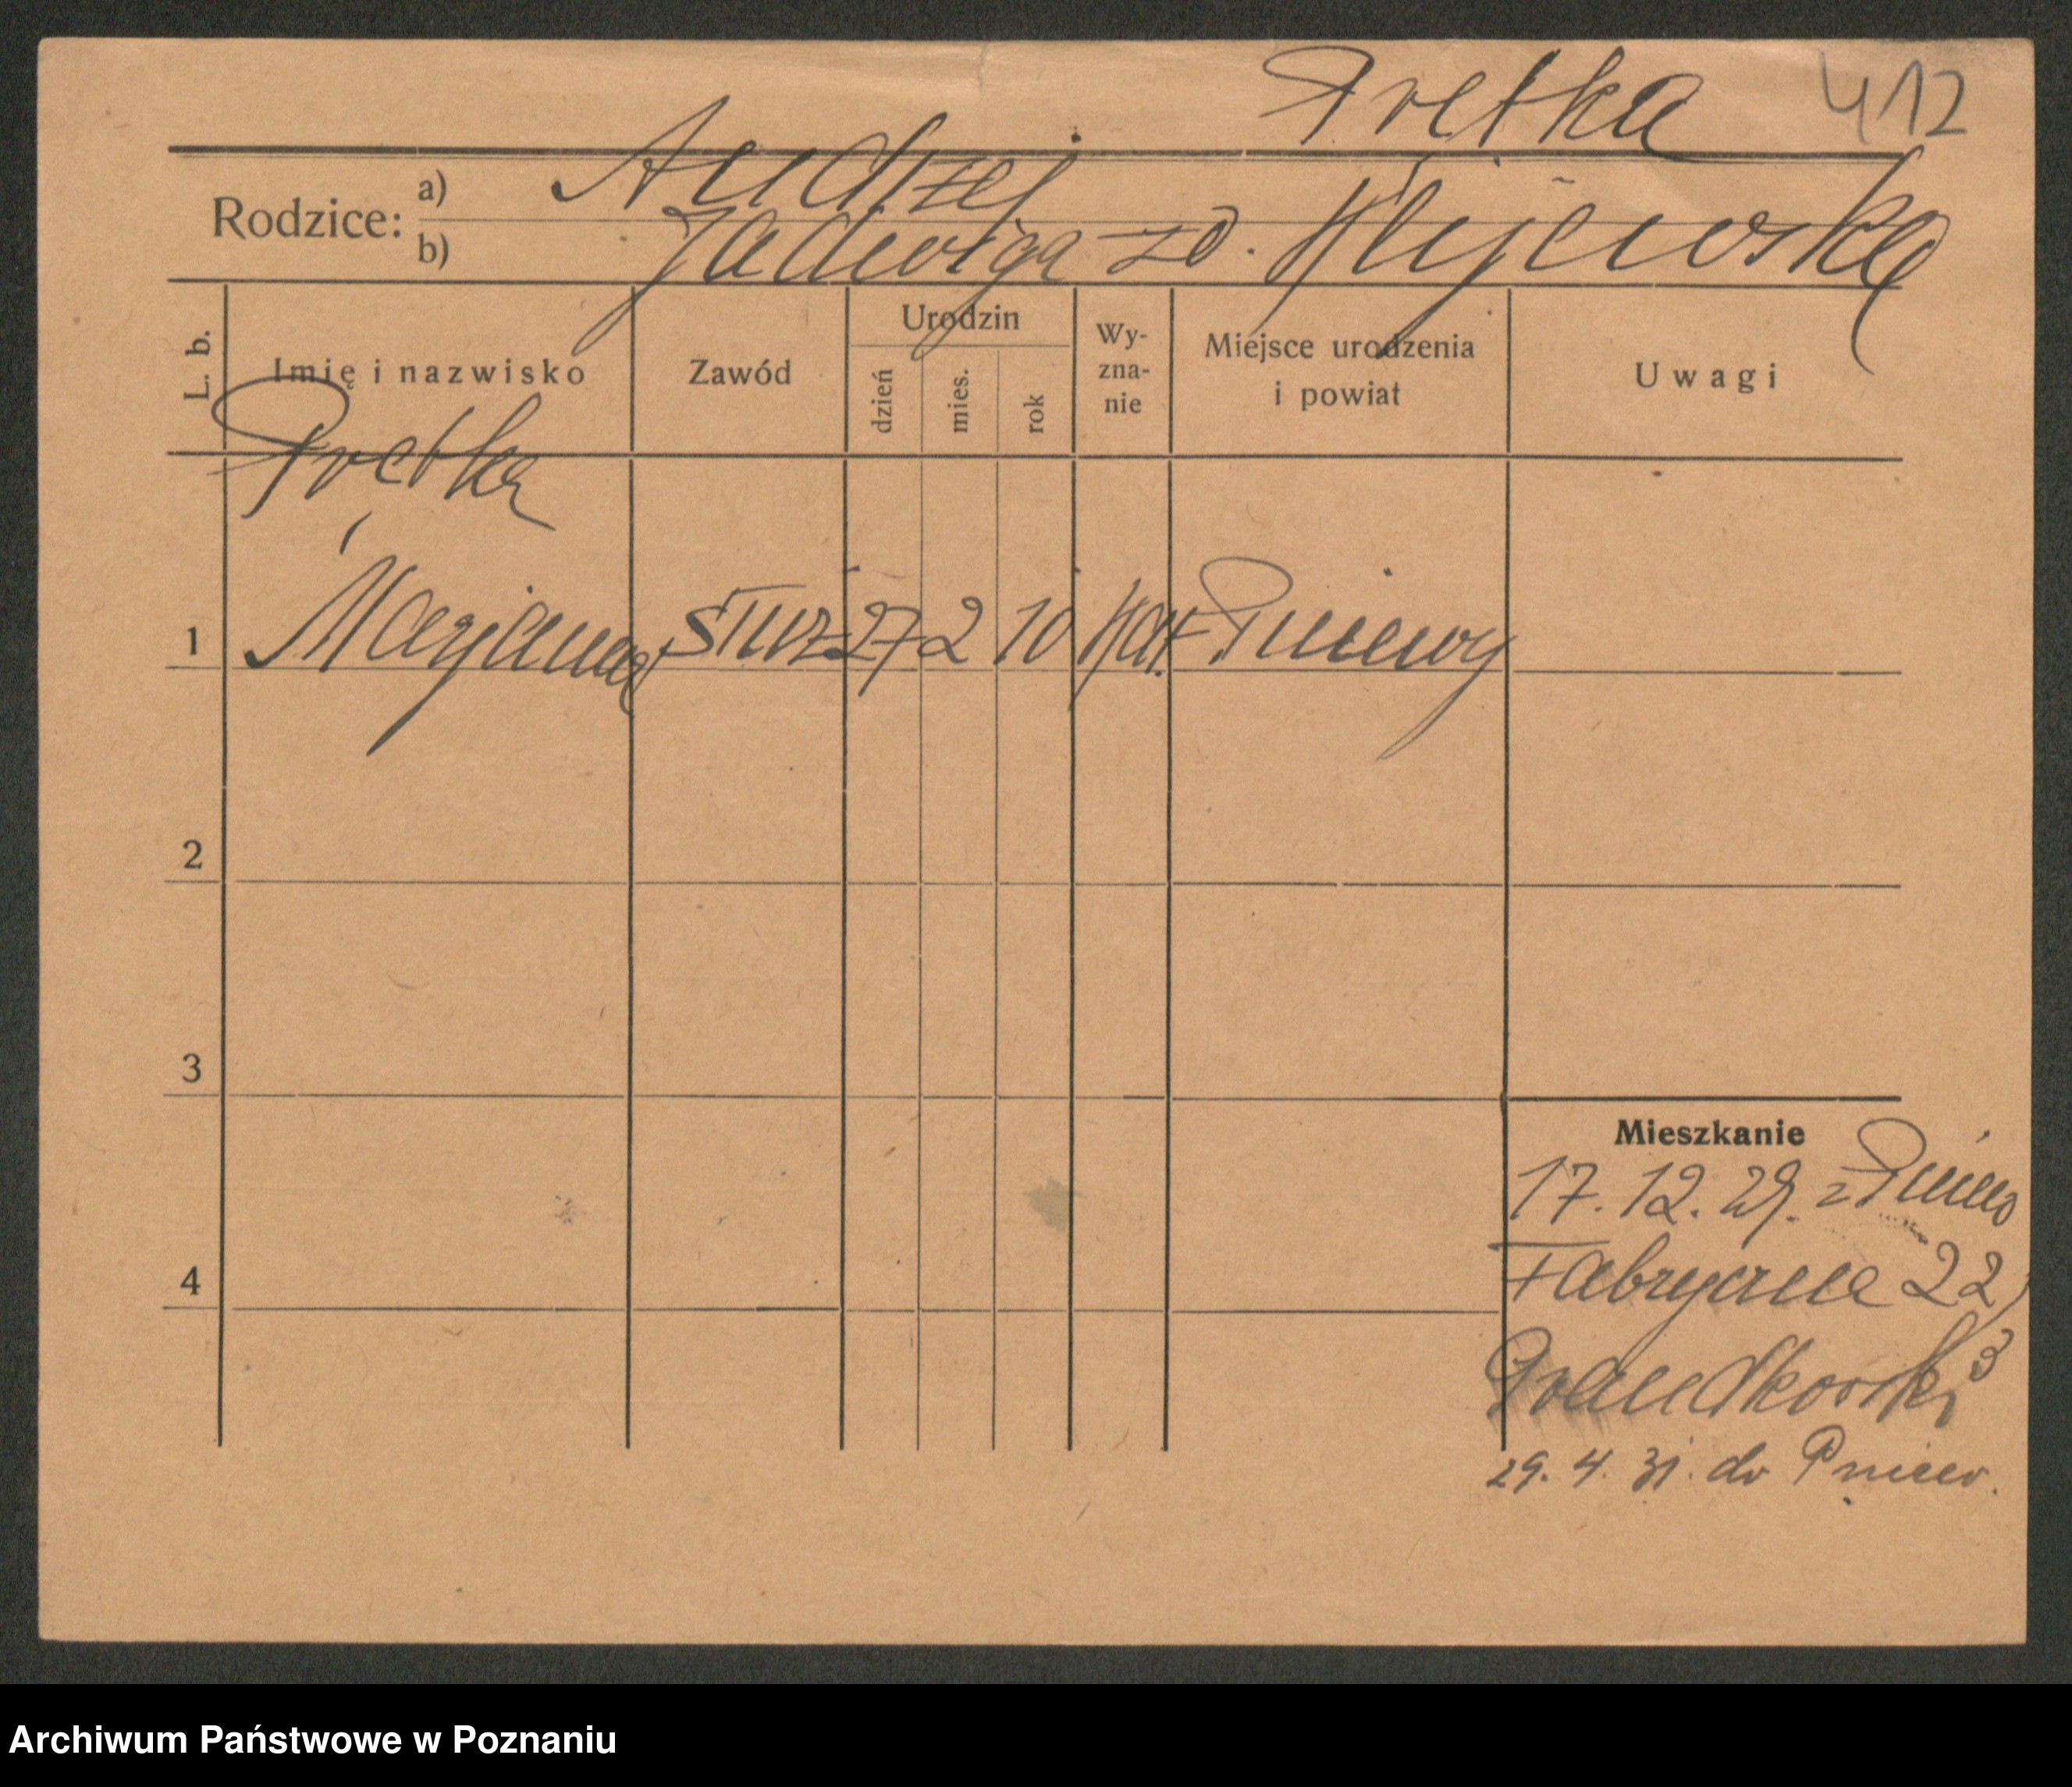 Pretka 412
Rodzice: a) Andrzej
b) Jadwiga zd. Klijewska
L. b. Imię i nazwisko Zawód Urodzin dzień mies. rok Wy-zna-nie Miejsce urodzenia i powiat Uwagi
Pretka
1 Marjanna służ 27 2 10 kat. Pniewy
2
3
4
Mieszkanie
17. 12. 29. z Pniew
Fabryczna 22
3
29. 4. 31. do Pniew.
Archiwum Państwowe w Poznaniu